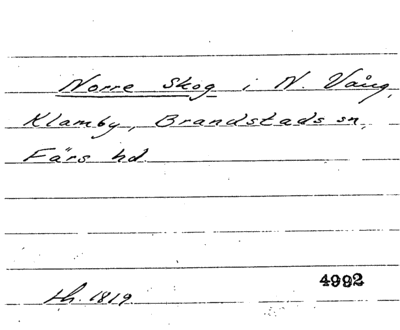 Norre Skog i N. Vång,
Klamby, Brandstads sn,
Färs hd
4992
sk. 1819